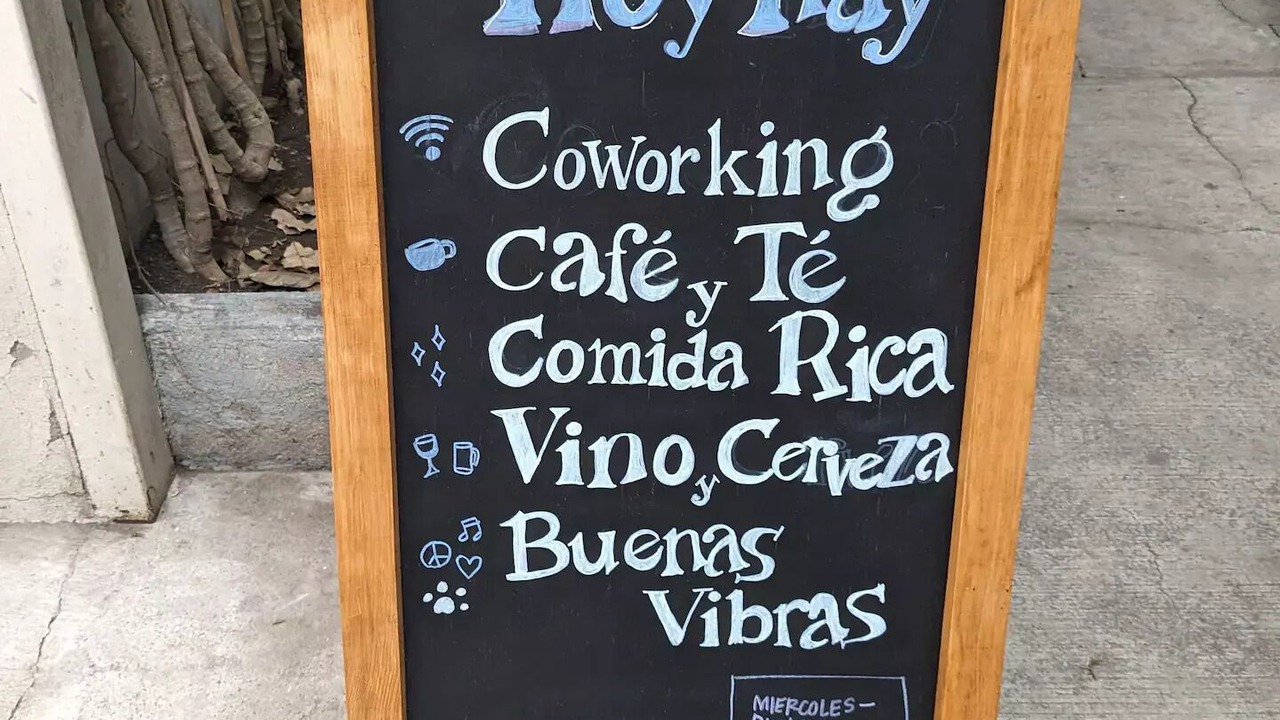 Hoy Hay
Coworking
Café y Té
Comida Rica
Vino y Cerveza
Buenas
Vibras
MIERCOLES—